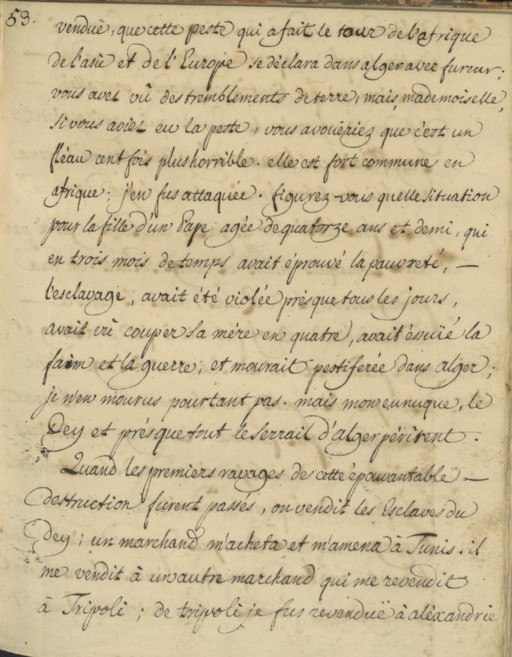 53.
venduë, que cette peste qui a fait le tour de l'afrique
de l'asie et de l'Europe se déclara dans alger avec fureur;
vous avez vû des tremblements de terre, mais, mademoiselle,
si vous aviez eu la peste, vous avoueriez que c'est un
fléau cent fois plus horrible. elle est fort commune en
afrique; j'en fus attaquée. figurez-vous quelle situation
pour la fille d'un Pape agée de quatorze ans et demi, qui
en trois mois de temps avait éprouvé la pauvreté, —
l'esclavage, avait été violée présque tous les jours,
avait vû couper sa mére en quatre, avait éssuié la
faim et la guerre, et mourait pestiferée dans alger;
je n'en mourus pourtant pas. mais mon eunuque, le
Dey et présque tout le serrail d'alger périrent.
Quand les premiers ravages de cette épouvantable —
destruction furent passés, on vendit les Esclaves du
Dey; un marchand m'acheta et m'amena à Tunis. il
me vendit à un autre marchand qui me revendit
à Tripoli; de tripoli je fus revenduë à aléxandrie